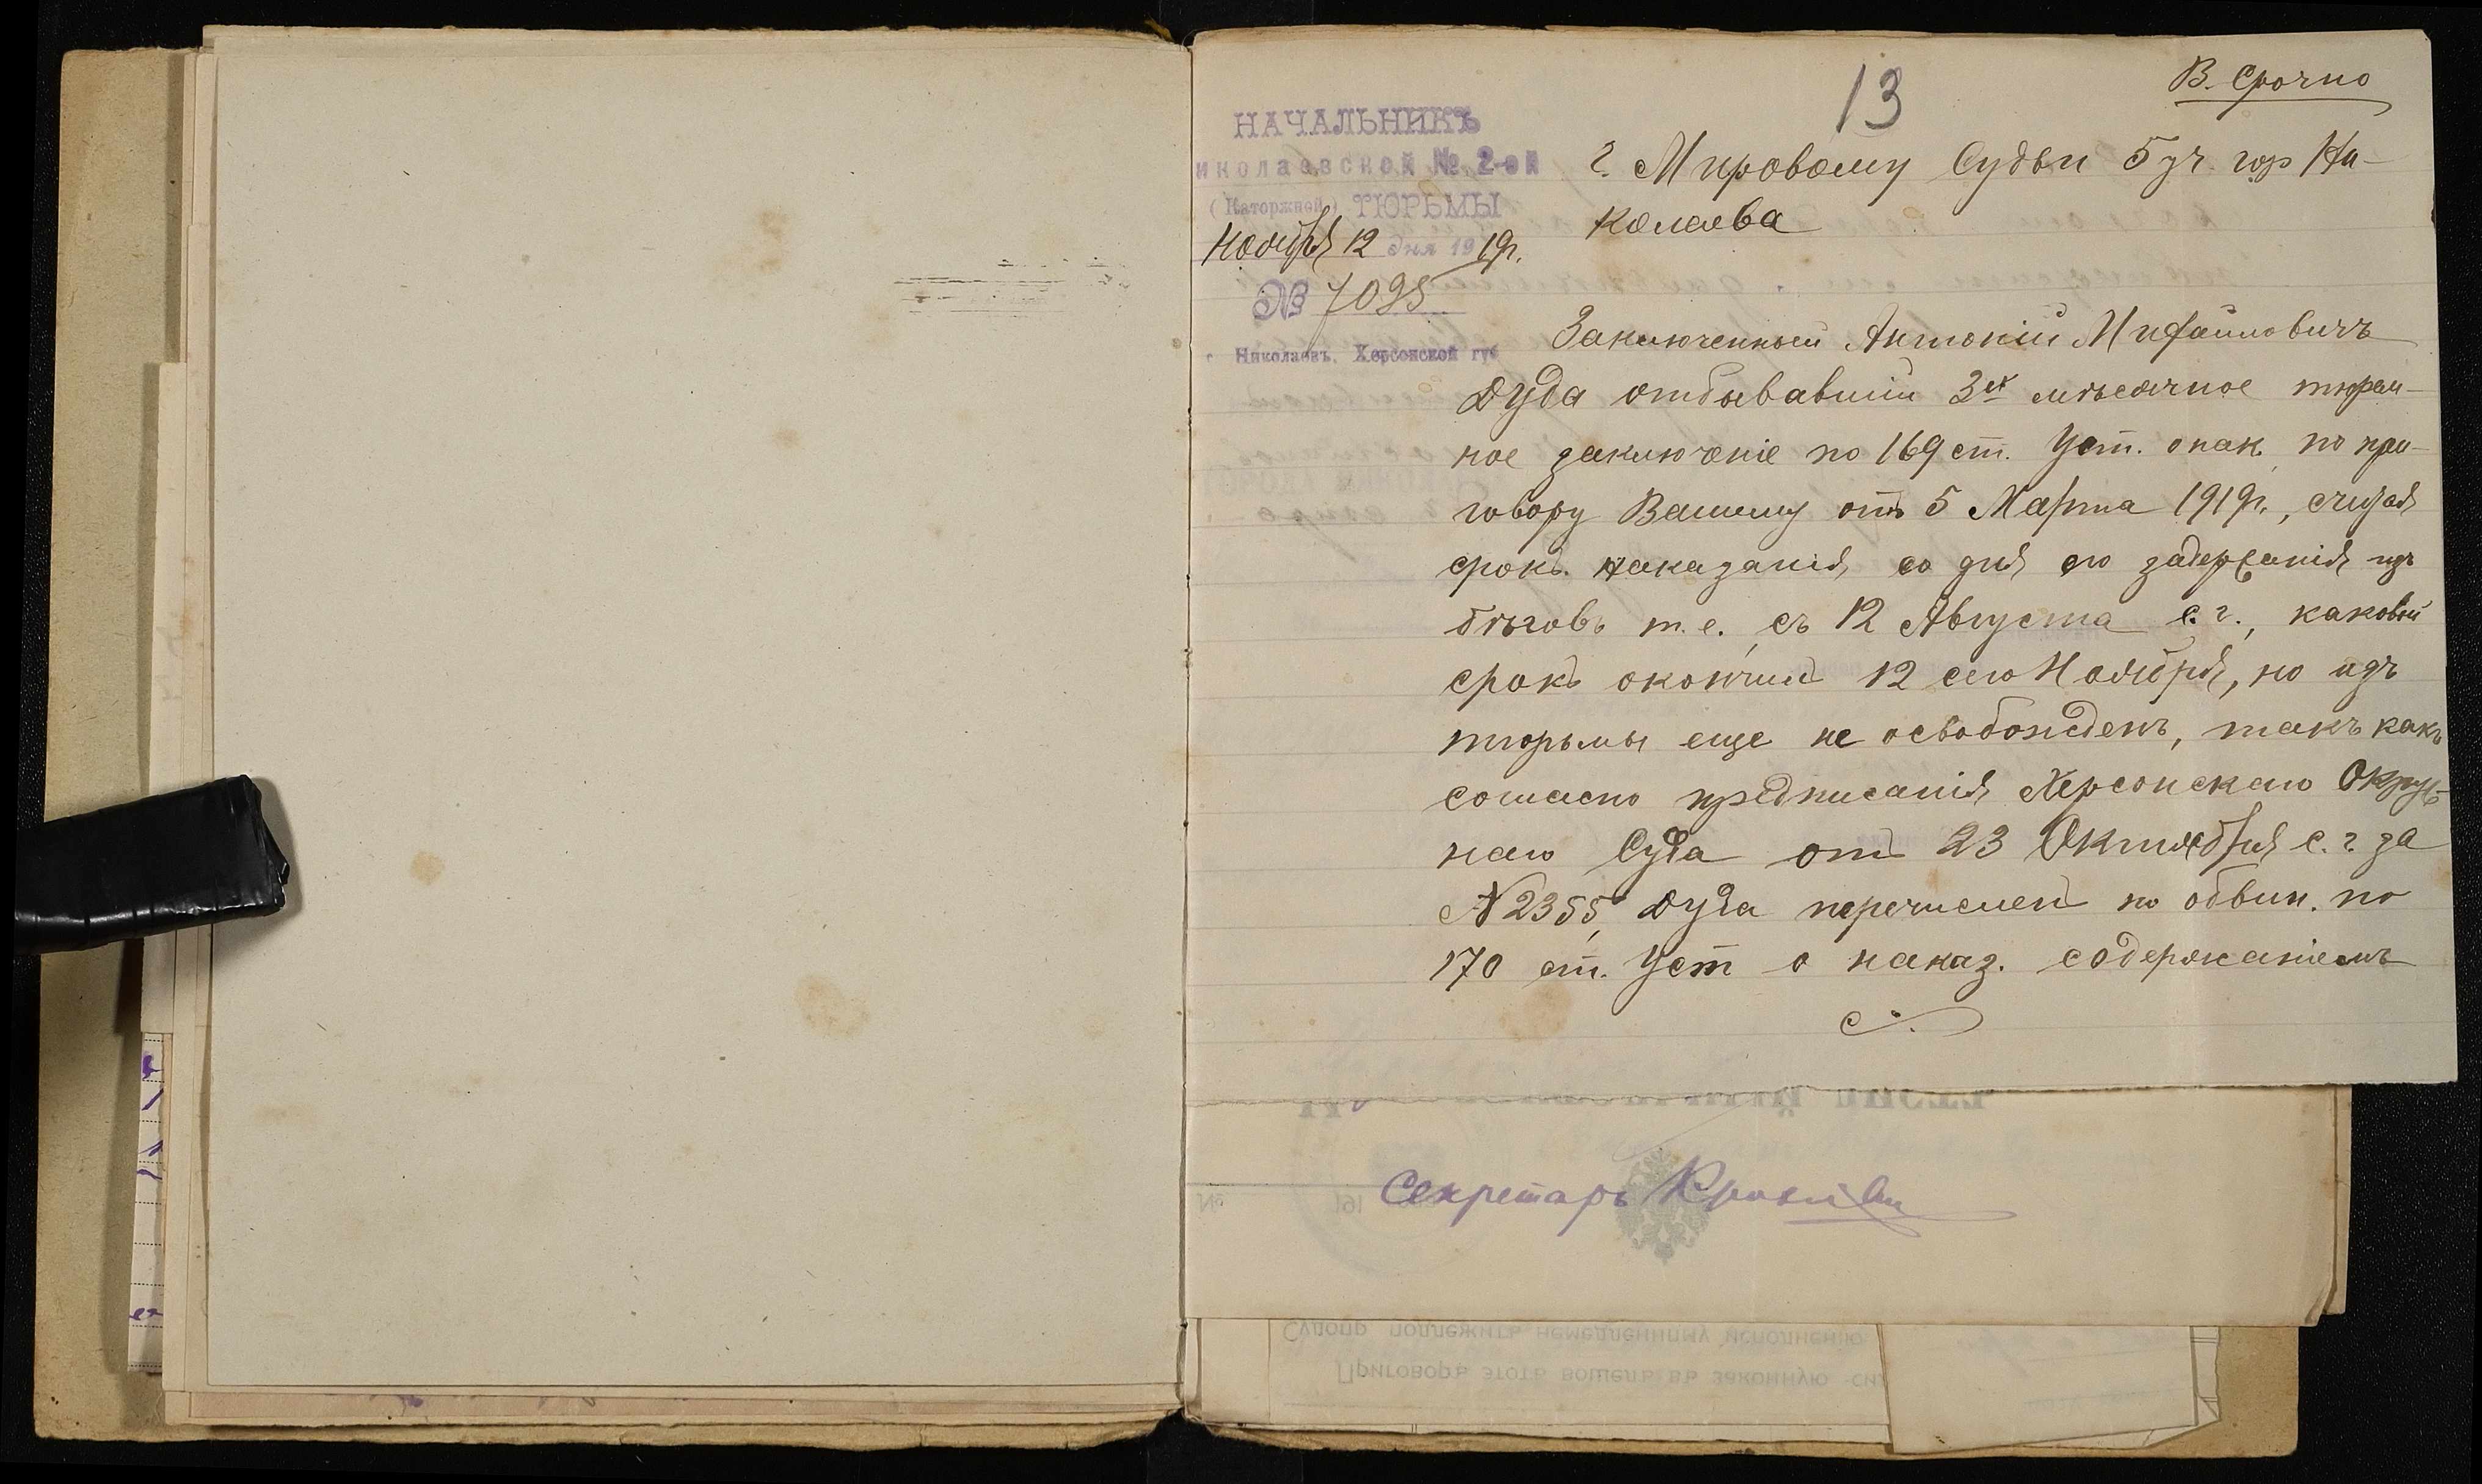 13
В. Срочно
НАЧАЛЬНИКЪ
иколаевской № 2-ой
(Каторжной) ТЮРЬМЫ
Ноября 12 дня 1919г.
№ 7095
г Николаевъ, Херсонской губ
г. Мировому Судьи 5 уч. гор Ни-
колаева
Заключенный Антоній Михайловичъ
Дуда отбывавшій 3ех мѣсячное тюрем-
ное заключеніе по 169 ст. Уст. о нак. по при-
говору Вашему отъ 5 Марта 1919г., считая
срокъ наказанія, со дня его задержанія изъ
бѣговъ т.е. съ 12 Августа с.г., каковый
срокъ окончилъ 12 сего Ноября, но изъ
тюрьмы еще не освобожденъ, такъ какъ
согласно предписанія, Херсонскаго Окруж-
наго Суда отъ 23 Октября с.г. за
№ 2355, Дуда перечисленъ по обвин. по
170 ст. Уст о наказ. содержаніемъ
Секретарь
№ 191
Судопр подлежитъ немедленному исполненію
Приговоръ этотъ вошелъ въ законную си